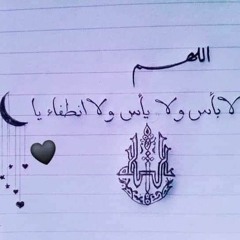 اللهم
لا بأس ولا يأس ولا انطفاء يا